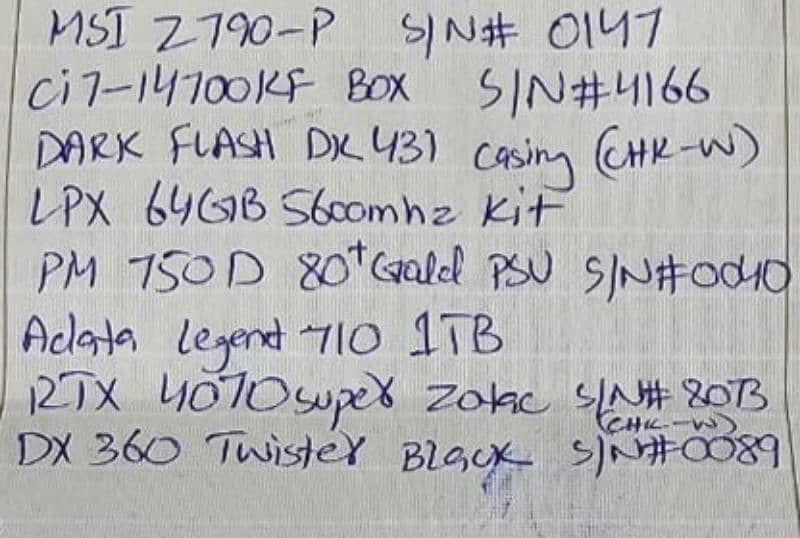 MSI Z790-P S/N# 0147
Ci7-14700KF BOX S/N#4166
DARK FLASH DK431 Casing (CHK-W)
LPX 64GB 5600mhz Kit
PM 750D 80+ Gold PSU S/N#0040
Adata Legend 710 1TB
RTX 4070super Zotac S/N# 80B
(CHK-W)
DX 360 Twister Black S/N#0089